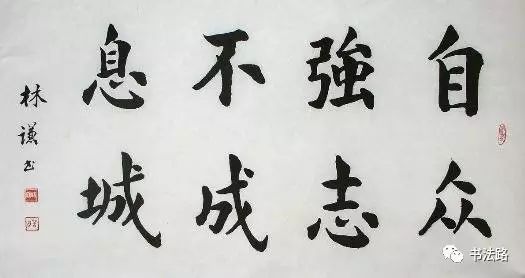 自強不息
众志成城
林谦书
书法路